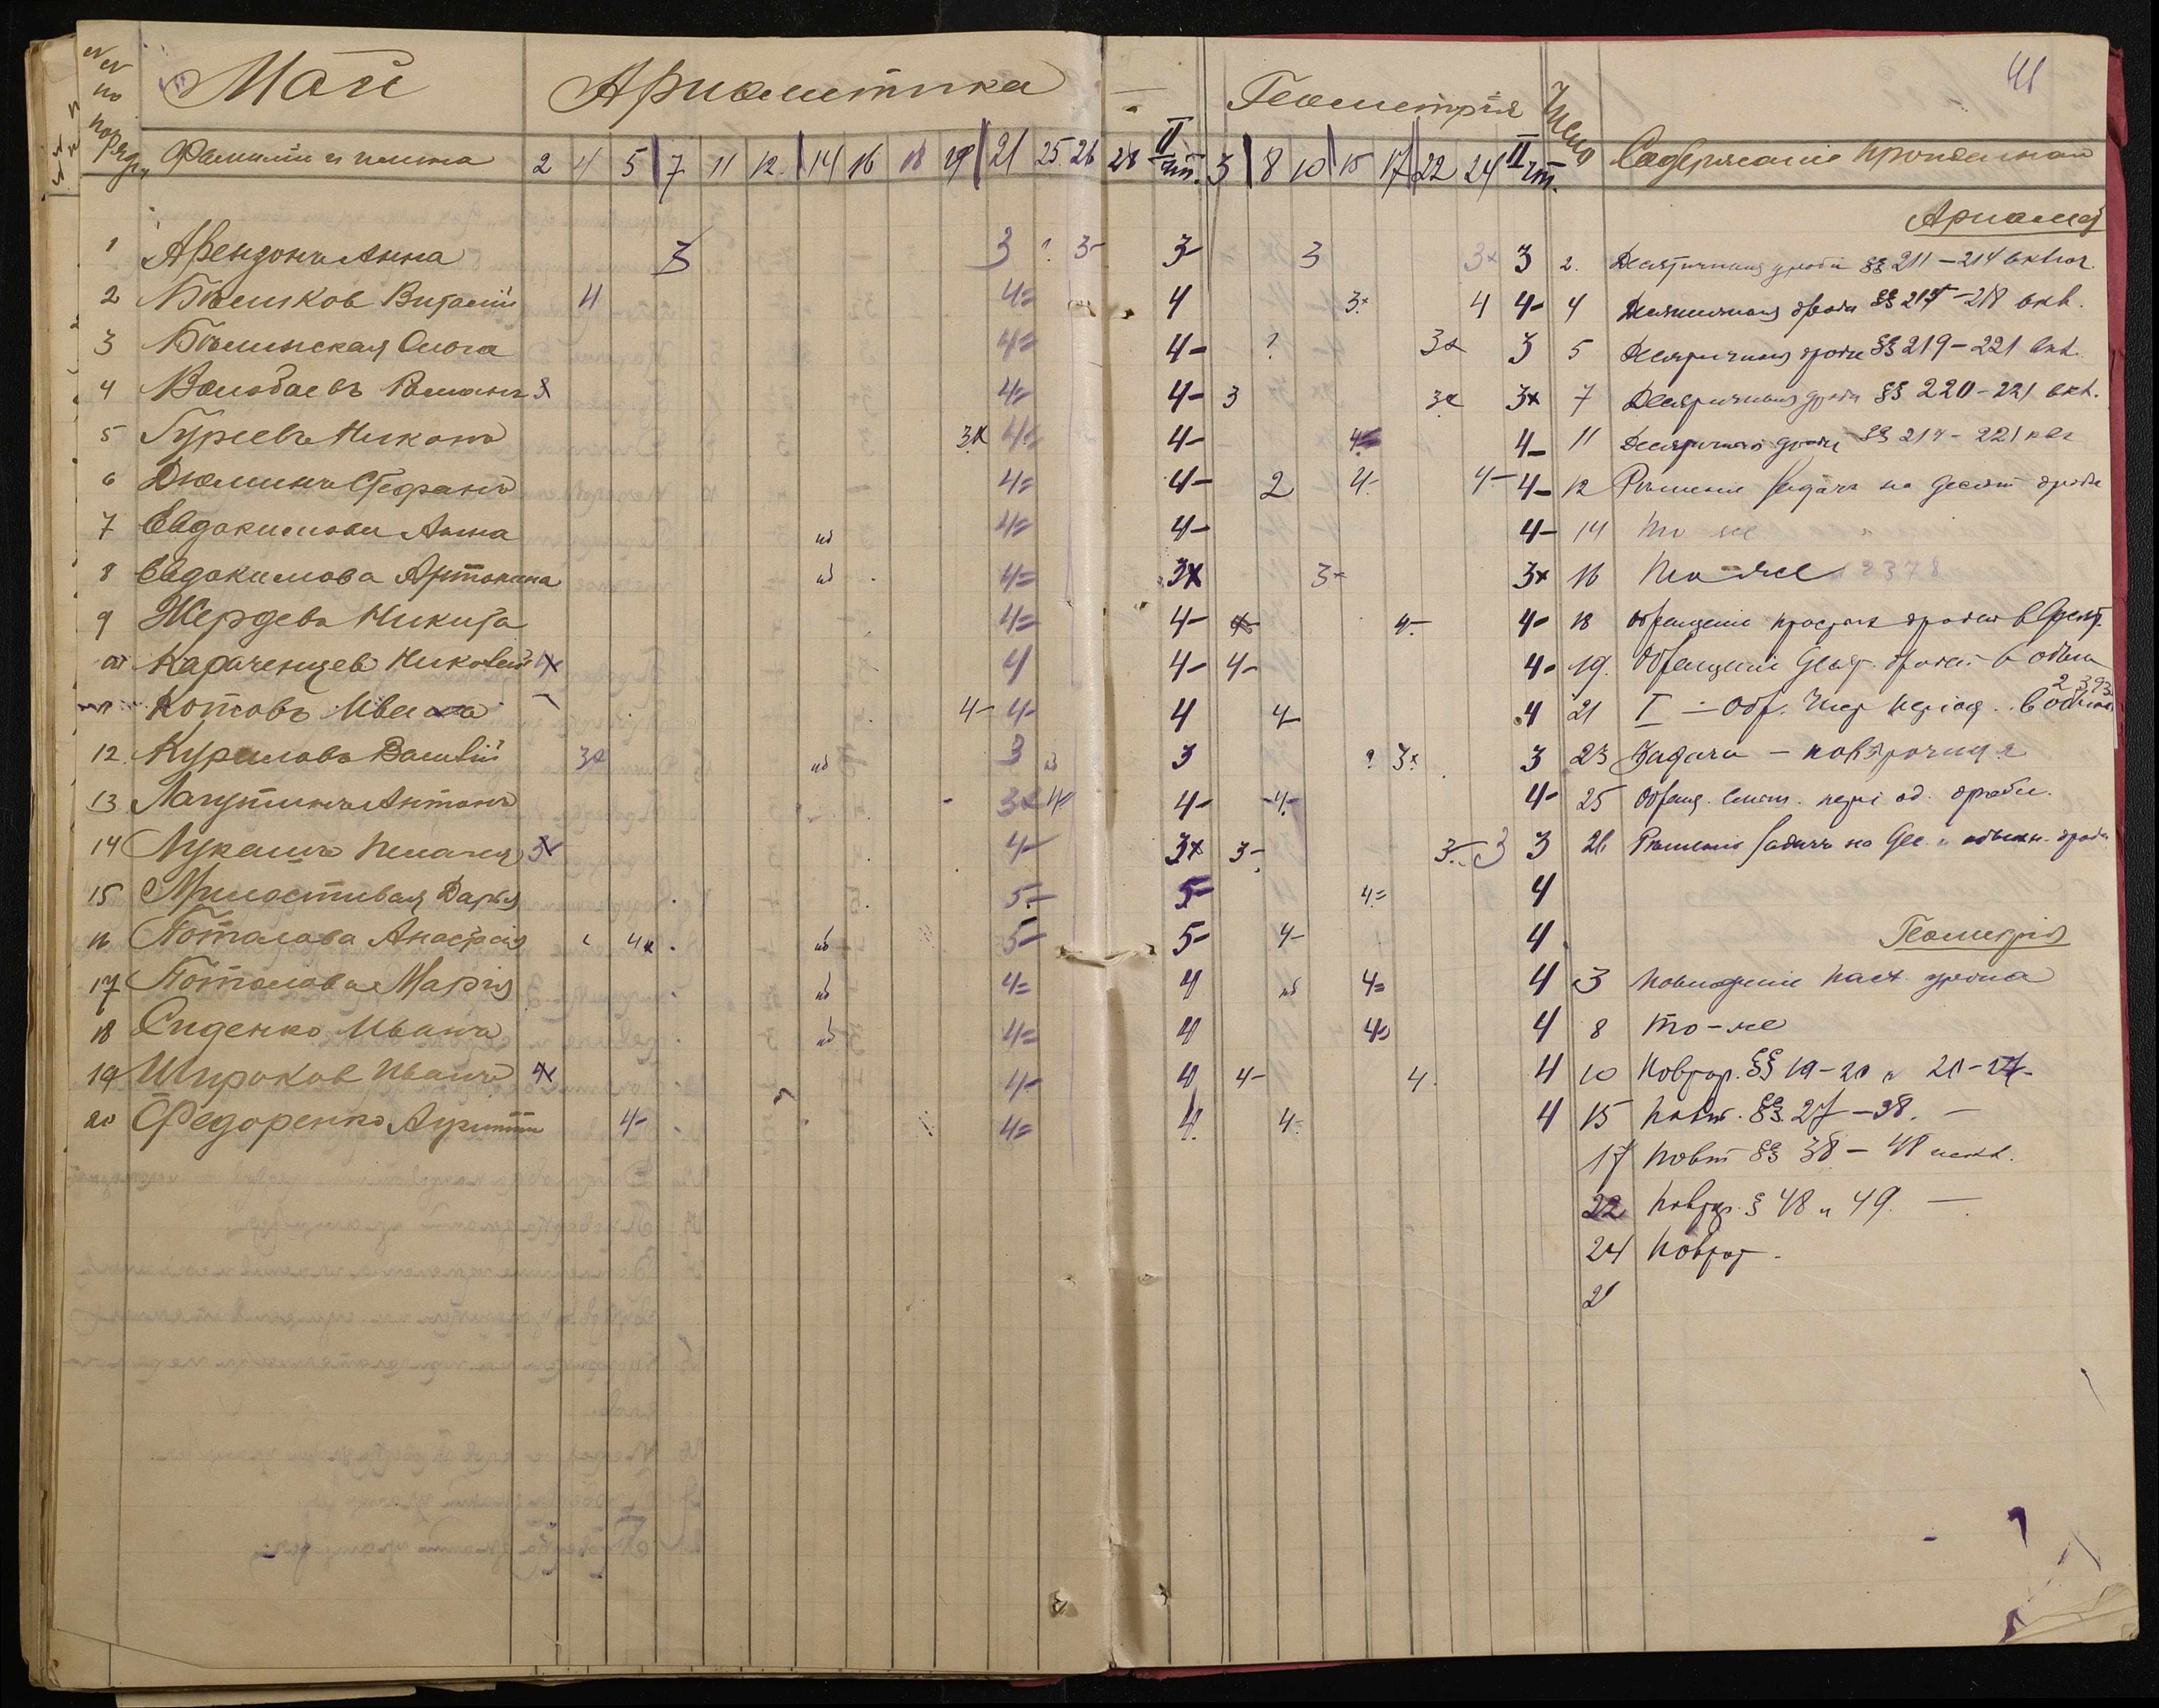 41
№№ по поряд. Май Ариѳметика Геометрія Число
Фамилии и имена 2 4 5 7 11 12 14 16 18 19 21 25 26 28 II чт. 3 8 10 15 17 22 24 II чт. Содержаніе пройденнаго
Ариѳмет
1 Анна 3 3 ? 3- 3- 3 3× 3 2. Десятичныя дроби §§ 211 – 214 включ.
2 Бѣликов Виталій 4 4= 4 3× 4 4- 4 Десятичныя дроби §§ 215 – 218 вкл.
3 Бѣлинская Ольга 4= 4- ? 3× 3 5 Десятичныя дроби §§ 219 – 221 вкл.
4 Романъ 3 4= 4- 3 3× 3× 7 Десятичныя дроби §§ 220 – 221 вкл.
5 Гуріевъ Никонъ 3× 4= 4- 4= 4- 11 Десятичныя дроби §§ 217 – 221 вкл
6 Дюминъ Стефанъ 4= 4- 2 4- 4- 4- 12 Рѣшеніе задачъ на десят дроби
7 Евдокимова Анна нб 4= 4- 4- 14 То же
8 Евдокимова нб 4= 3× 3× 3× 16 То же 2378
9 Жердевъ Никита 4= 4- 4- 4- 18 Обращеніе дробей в десят.
10 Карачѣнцев Николай 4× 4 4- 4- 4- 19. Обращеніе десят. дробей в обыкн
11 Котовъ Иванъ 4- 4- 4 4- 4 21 I – Обр. період. в обыкн 2393
12 Куриловъ Василій 3× нб 3 нб 3 ? 3× 3 23 Задачи –
13 Лагутинъ Антонъ 3× 4- 4- 4- 4- 25 Обращ. смѣш. період. дроби.
14 Лукашъ Пелагея 3× 4- 3× 3- 3- 3 3 26 Рѣшеніе задачъ на дес. и обыкн. дроби
15 Милостивая Дарья 5- 5- 4= 4
16 Поталова Анастасія 4× нб 5- 5- 4- 4 Геометрія
17 Поталова Марія нб 4= 4 нб 4= 4 3 Повтореніе
18 Сиденко Иванъ нб 4= 4 4= 4 8 То-же
19 Широков Иванъ 4× 4- 4 4- 4. 4 10 Повтор. §§ 19 – 20 и 20 – 27-
20 Федоренко 4- 4= 4 4- 4 15 Повт. §§ 27 – 38. –
17 Повт §§ 38 – 48 вкл.
22 Повтор. § 48 и 49. –
24 Повтор.
2